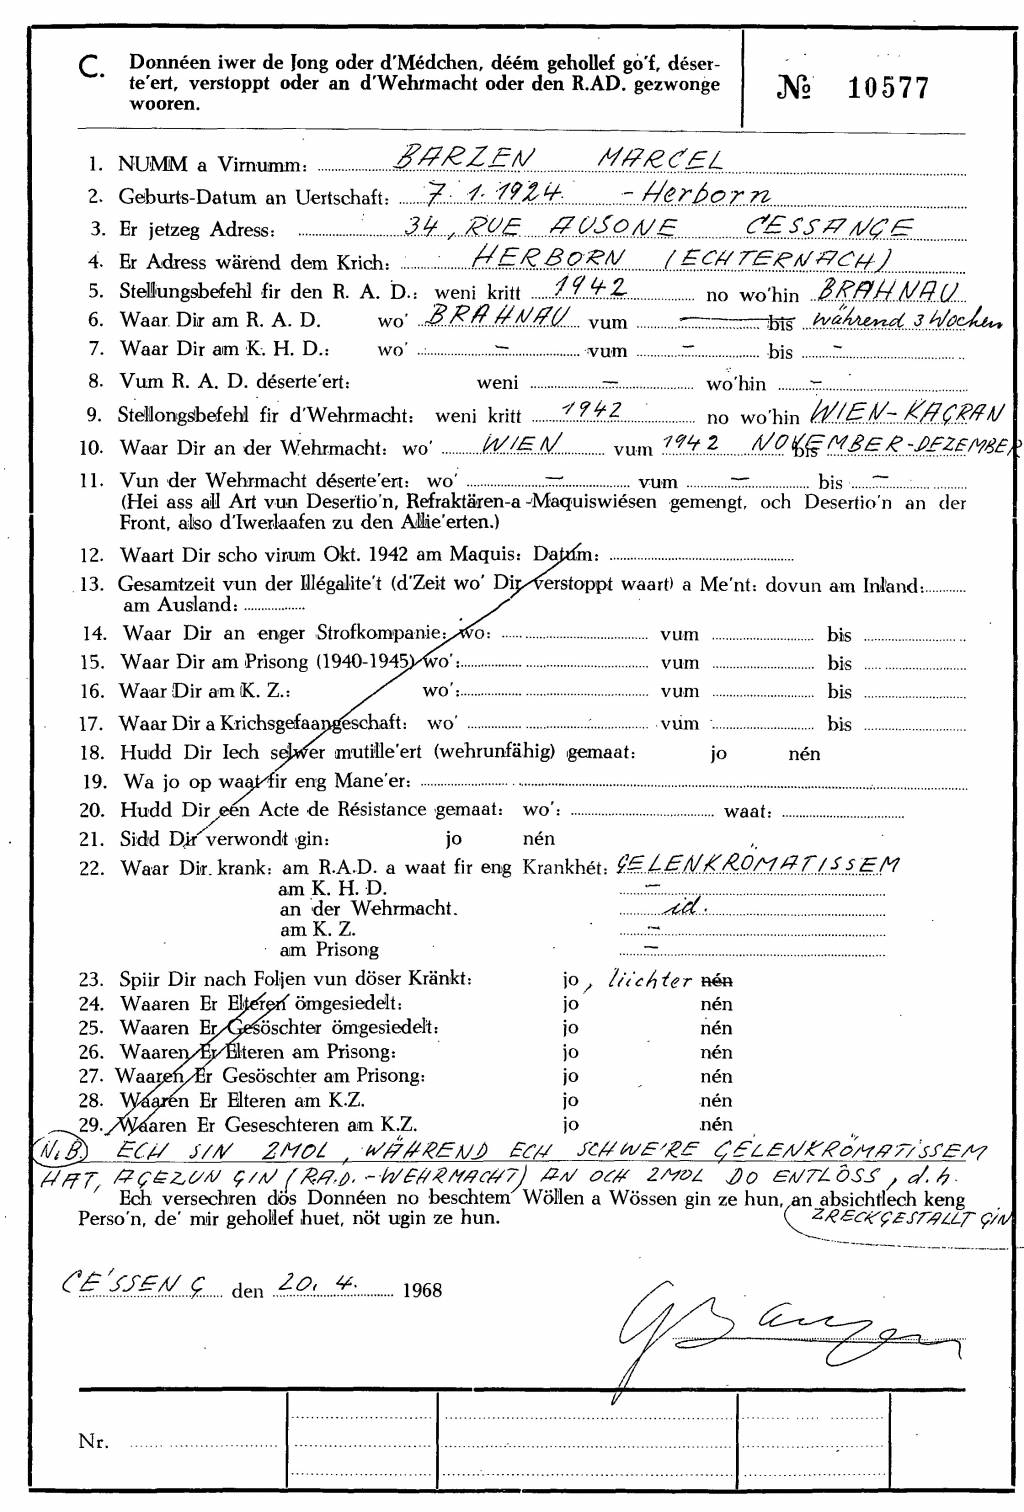 C. Donnéen iwer de Jong oder d'Médchen, déém gehollef gó'f, déser-
te'ert, verstoppt oder an d'Wehrmacht oder den R.AD. gezwonge
wooren.
№ 10577
1. NUMM a Virnumm: BARZEN MARCEL
2. Geburts-Datum an Uertschaft: 7.1.1924. - Herborn
3. Er jetzeg Adress: 34, RUE AUSONE CESSANGE
4. Er Adress wärend dem Krich: HERBORN (ECHTERNACH)
5. Stellungsbefehl fir den R. A. D.: weni kritt 1942 no wo'hin BRAHNAU
6. Waar Dir am R. A. D. wo' BRAHNAU vum bis während 3 Wochen
7. Waar Dir am K. H. D.: wo' – vum – bis –
8. Vum R. A. D. déserte'ert: weni – wo'hin –
9. Stellongsbefehl fir d'Wehrmacht: weni kritt 1942 no wo'hin WIEN-KAGRAN
10. Waar Dir an der Wehrmacht: wo' WIEN vum 1942 NOVEMBER-DEZEMBER bis
11. Vun der Wehrmacht déserte'ert: wo' – vum – bis –
(Hei ass all Art vun Desertio'n, Refraktären-a -Maquiswiésen gemengt, och Desertio'n an der
Front, also d'Iwerlaafen zu den Allie'erten.)
12. Waart Dir scho virum Okt. 1942 am Maquis: Datum:
13. Gesamtzeit vun der Illégalite't (d'Zeit wo' Dir verstoppt waart) a Me'nt: dovun am Inland:
am Ausland:
14. Waar Dir an enger Strofkompanie: wo: vum bis
15. Waar Dir am Prisong (1940-1945) wo': vum bis
16. Waar Dir am K. Z.: wo': vum bis
17. Waar Dir a Krichsgefaangeschaft: wo' vum bis
18. Hudd Dir Iech selwer mutille'ert (wehrunfähig) gemaat: jo nén
19. Wa jo op waat fir eng Mane'er:
20. Hudd Dir eén Acte de Résistance gemaat: wo': waat:
21. Sidd Dir verwondt gin: jo nén
22. Waar Dir krank: am R.A.D. a waat fir eng Krankhét: GELENKRÖMATISSEM
am K. H. D. –
an der Wehrmacht. id.
am K. Z. –
am Prisong –
23. Spiir Dir nach Foljen vun döser Kränkt: jo, liichter nén
24. Waaren Er Elteren ömgesiedelt: jo nén
25. Waaren Er Gesöschter ömgesiedelt: jo nén
26. Waaren Er Elteren am Prisong: jo nén
27. Waaren Er Gesöschter am Prisong: jo nén
28. Waaren Er Elteren am K.Z. jo nén
29. Waaren Er Geseschteren am K.Z. jo nén
N.B. ECH SIN 2MOL, WÄHREND ECH SCHWE'RE GELENKRÖMATISSEM
HAT, AGEZUN GIN (R.A.D. - WEHRMACHT) AN OCH 2MOL DO ENTLÖSS, d.h.
Ech versechren dös Donnéen no beschtem Wöllen a Wössen gin ze hun, an absichtlech keng
Perso'n, de' mir gehollef huet, nöt ugin ze hun. ZRECKGESTALLT GIN
CE'SSENG den 20. 4. 1968
Nr.